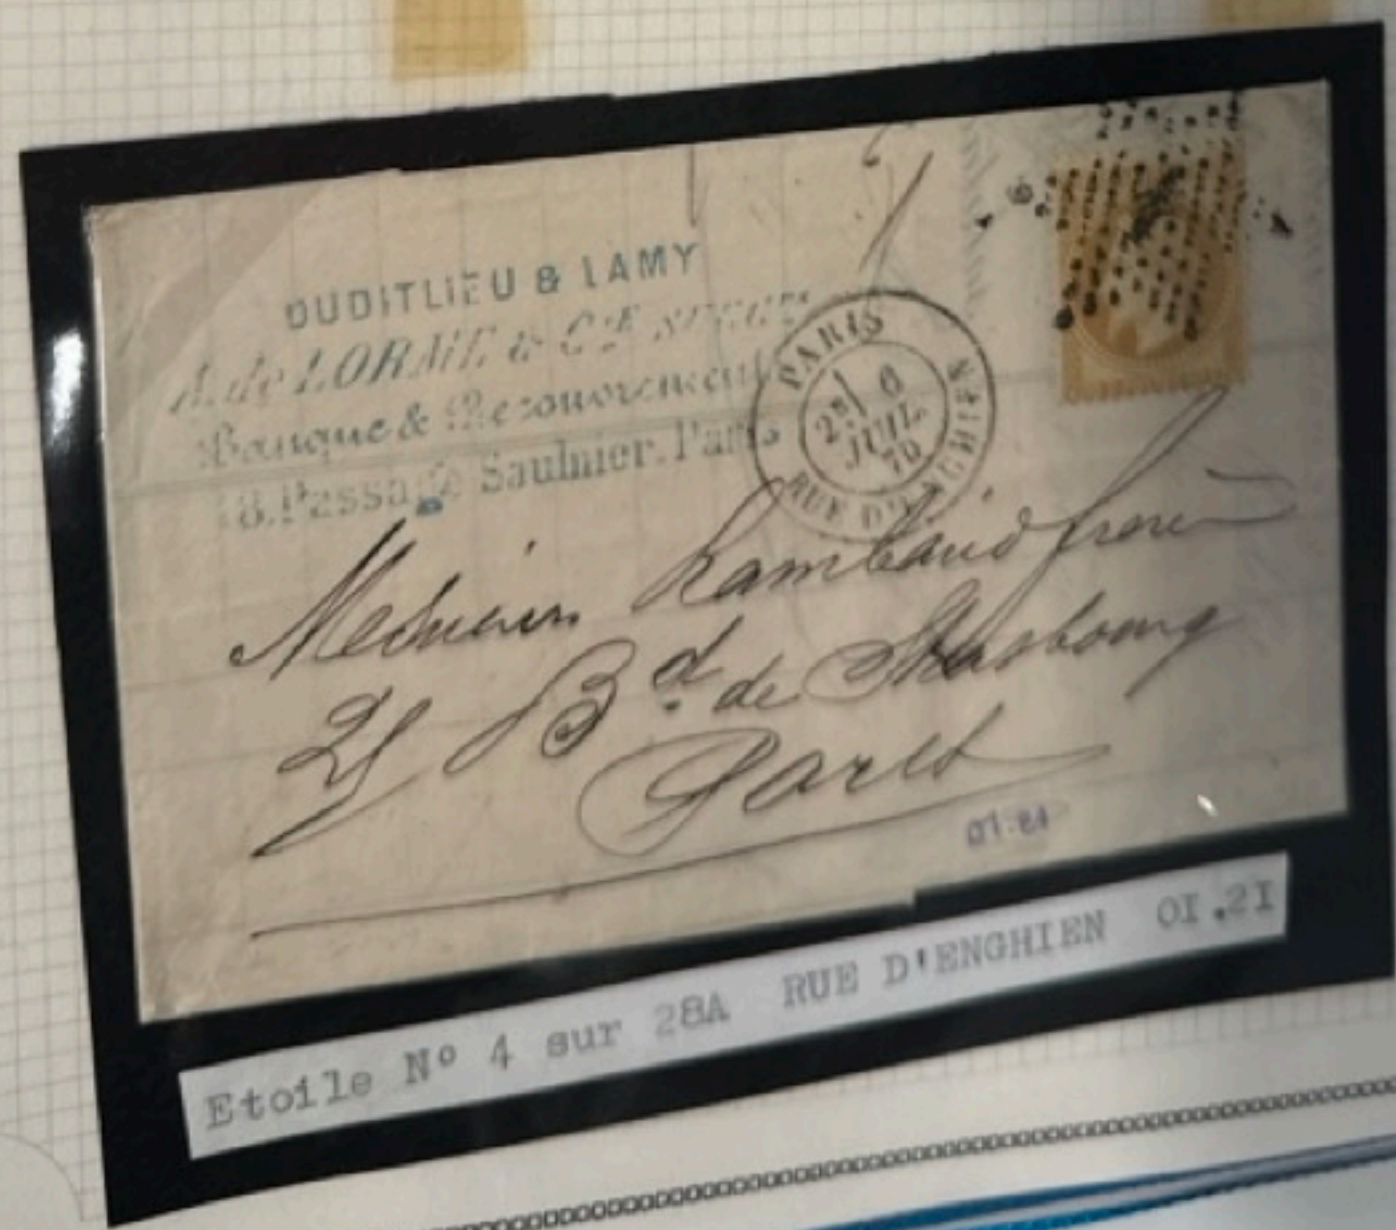 OUDITLIEU & LAMY
A. de LORME & CIE
Banque & Recouvrement
18. Passage Saulnier. Paris
PARIS
2E 6
JUIL
70
RUE D'ENGHIEN
Messieurs Rambaud frères
25 Bd de Strasbourg
Paris
Etoile N° 4 sur 28A RUE D'ENGHIEN OI.2I